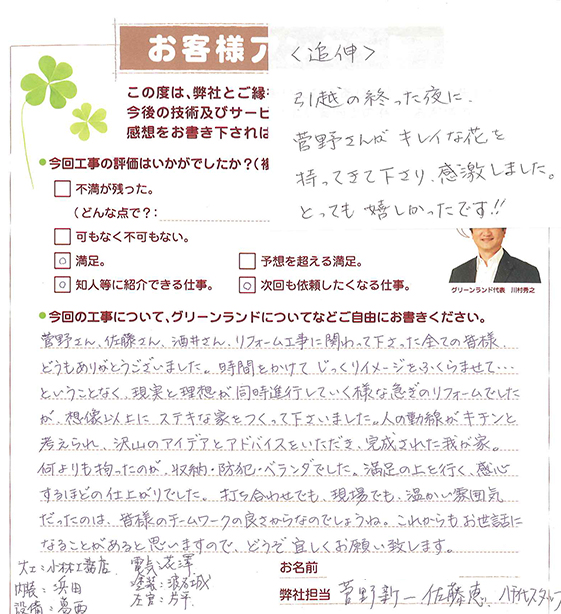 お客様ア
<追伸>
引越の終った夜に、
菅野さんが キレイな花を
持ってきて下さり、感激しました。
とっても 嬉しかったです!!
この度は、弊社とご縁
今後の技術及びサービ
感想をお書き下されは
●今回工事の評価はいかがでしたか?(複
不満が残った。
(どんな点で?:
可もなく不可もない。
満足。
予想を超える満足。
知人等に紹介できる仕事。
次回も依頼したくなる仕事。
グリーンランド代表 川村秀之
●今回の工事について、グリーンランドについてなどご自由にお書きください。
菅野さん、佐藤さん、酒井さん、リフォーム工事に関わって下さった全ての皆様、
どうもありがとうございました。時間をかけて じっくりイメージをふくらませて…
ということなく、現実と理想が同時進行していく様な急ぎのリフォームでした
が、想像以上に ステキな家をつくって下さいました。人の動線がキチンと
考えられ、沢山のアイデアとアドバイスをいただき、完成された我が家。
何よりも拘ったのが、収納・防犯・ベランダでした。満足の上を行く、感心
するほどの仕上がりでした。打ち合わせでも、現場でも、温かい雰囲気
だったのは、皆様のチームワークの良さからなのでしょうね。これからもお世話に
なることがあると思いますので、どうぞ宜しくお願い致します。
大工:小林工務店 電気:花澤
内装:浜田 塗装:
設備:葛西 左官:片平
お名前
弊社担当 菅野新一 佐藤恵